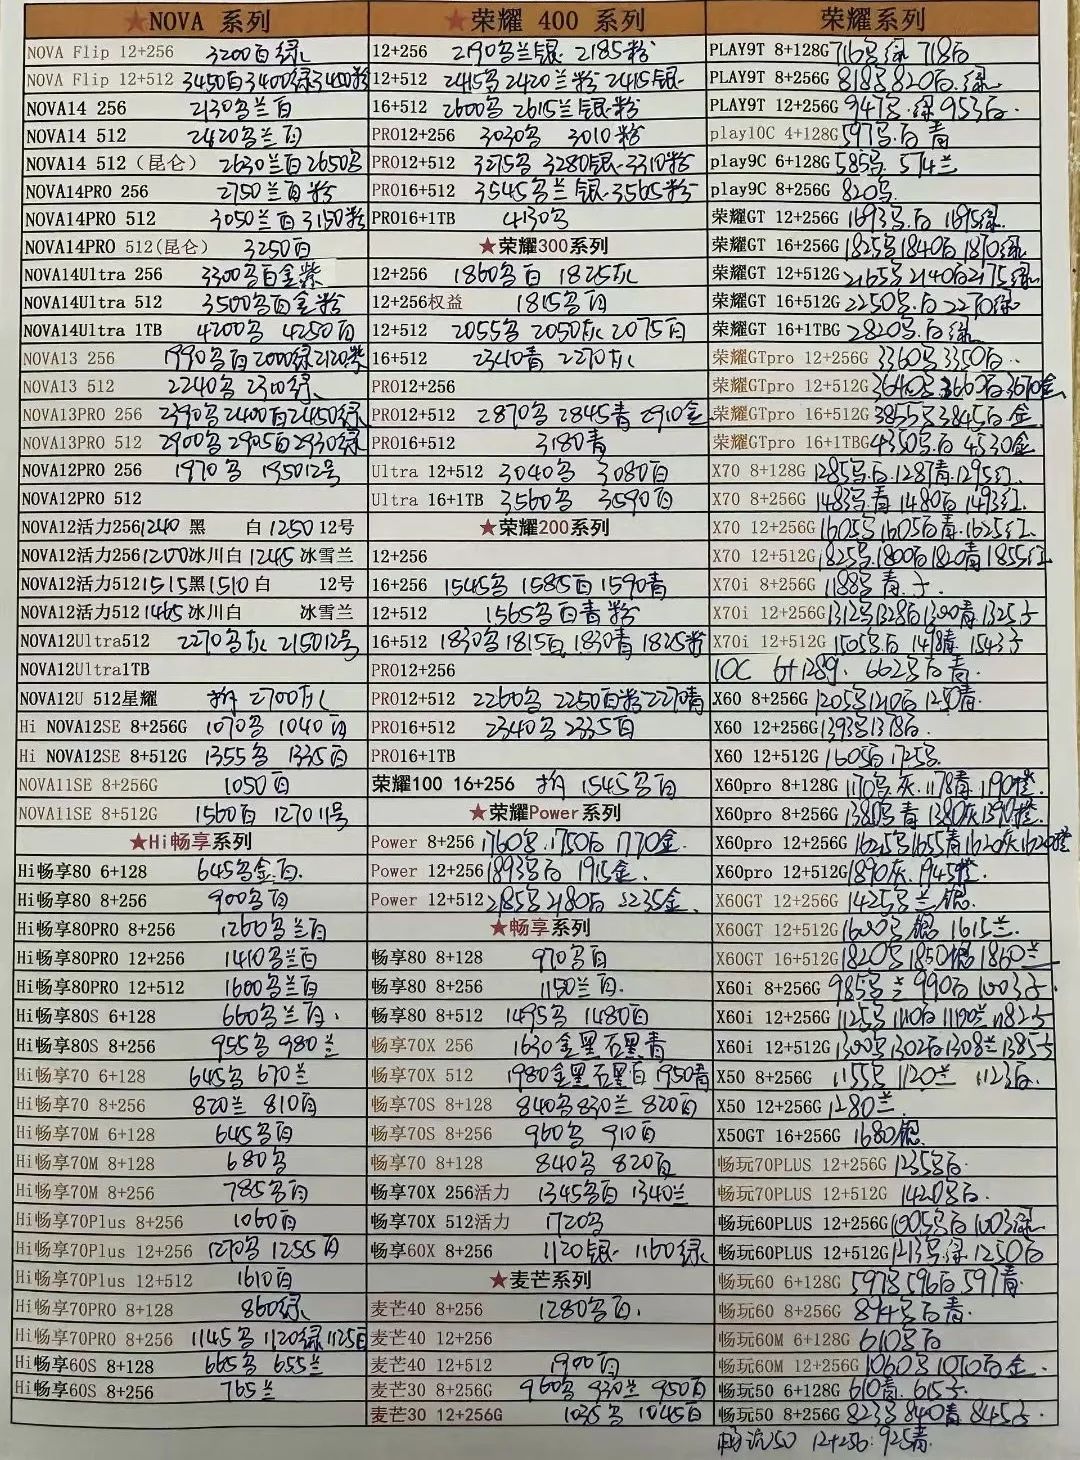 ★NOVA 系列
NOVA Flip 12+256 3200白绿
NOVA Flip 12+512 3450白3400绿3400粉
NOVA14 256 2130乌兰白
NOVA14 512 2420乌兰白
NOVA14 512（昆仑） 2630兰白2650乌
NOVA14PRO 256 2750兰白粉
NOVA14PRO 512 3050兰白3150粉
NOVA14PRO 512(昆仑) 3250白
NOVA14Ultra 256 3300乌白金紫
NOVA14Ultra 512 3500乌白金粉
NOVA14Ultra 1TB 4200乌 4250白
NOVA13 256 1990乌白2000绿2120紫
NOVA13 512 2240乌 2300绿
NOVA13PRO 256 2390乌2400白2450绿
NOVA13PRO 512 2900乌2905白2930绿
NOVA12PRO 256 1970乌 195012号
NOVA12PRO 512
NOVA12活力256 1240 黑 白 1250 12号
NOVA12活力256 1200冰川白 1245 冰雪兰
NOVA12活力512 1515黑1510白 12号
NOVA12活力512 1465冰川白 冰雪兰
NOVA12Ultra512 2270乌灰 2150 12号
NOVA12Ultra1TB
NOVA12U 512星耀 2700灰
Hi NOVA12SE 8+256G 1070乌 1040白
Hi NOVA12SE 8+512G 1355乌 1335白
NOVA11SE 8+256G 1050白
NOVA11SE 8+512G 1560白 1270 11号
★Hi畅享系列
Hi畅享80 6+128 645乌金白.
Hi畅享80 8+256 900乌白
Hi畅享80PRO 8+256 1260乌兰白
Hi畅享80PRO 12+256 1410乌兰白
Hi畅享80PRO 12+512 1600乌兰白
Hi畅享80S 6+128 660乌兰白.
Hi畅享80S 8+256 955乌 980兰
Hi畅享70 6+128 645乌 670兰
Hi畅享70 8+256 820兰 810白
Hi畅享70M 6+128 645乌白
Hi畅享70M 8+128 680乌
Hi畅享70M 8+256 785乌白
Hi畅享70Plus 8+256 1060白
Hi畅享70Plus 12+256 1270乌 1255白
Hi畅享70Plus 12+512 1610白
Hi畅享70PRO 8+128 860绿
Hi畅享70PRO 8+256 1145乌 1120绿 1125白
Hi畅享60S 8+128 665乌 655兰
Hi畅享60S 8+256 765兰
★荣耀 400 系列
12+256 2190乌兰银 2185粉
12+512 2415乌2420兰粉2415银
16+512 2600乌 2615兰银粉
PRO12+256 3030乌 3010粉
PRO12+512 3275乌 3280银 3310粉
PRO16+512 3545乌兰银 3565粉
PRO16+1TB 4130乌
★荣耀300系列
12+256 1860乌白 1825灰
12+256权益 1815乌白
12+512 2055乌2050灰2075白
16+512 2340青 2270灰
PRO12+256
PRO12+512 2870乌 2845青 2910金
PRO16+512 3180青
Ultra 12+512 3040乌 3080白
Ultra 16+1TB 3560乌 3590白
★荣耀200系列
12+256
16+256 1545乌 1585白 1590青
12+512 1565乌白青粉
16+512 1830乌1815白1830青1825粉
PRO12+256
PRO12+512 2260乌 2250白粉2270青
PRO16+512 2340乌2335白
PRO16+1TB
荣耀100 16+256 1545乌白
★荣耀Power系列
Power 8+256 1760乌.1750白 1770金.
Power 12+256 1893乌白 1915金.
Power 12+512 2185乌2180白 2235金.
★畅享系列
畅享80 8+128 970乌白
畅享80 8+256 1150兰白.
畅享80 8+512 1495乌 1480白
畅享70X 256 1630金黑石黑青
畅享70X 512 1980金黑石黑白 1950青
畅享70S 8+128 840乌830兰 820白
畅享70S 8+256 960乌 910白
畅享70 8+128 840乌 820白
畅享70X 256活力 1345乌白 1340兰
畅享70X 512活力 1720乌
畅享60X 8+256 1120银 1160绿
★麦芒系列
麦芒40 8+256 1280乌白.
麦芒40 12+256
麦芒40 12+512 1900白
麦芒30 8+256G 960乌 930兰 950白
麦芒30 12+256G 1035乌 1045白
荣耀系列
PLAY9T 8+128G 716乌绿 718白
PLAY9T 8+256G 818乌820白.绿
PLAY9T 12+256G 947乌.绿 953白.
play10C 4+128G 597乌.白 青
play9C 6+128G 585乌. 574兰
play9C 8+256G 820乌
荣耀GT 12+256G 1693乌白 1695绿
荣耀GT 16+256G 1825乌1840白1870绿
荣耀GT 12+512G 2165乌2140白2175绿
荣耀GT 16+512G 2250乌.白 2270绿
荣耀GT 16+1TBG 2820乌.白绿
荣耀GTpro 12+256G 3360乌3350白..
荣耀GTpro 12+512G 3640乌3660白3670金
荣耀GTpro 16+512G 3855乌3845白.金
荣耀GTpro 16+1TBG 4350乌.白 4530金
X70 8+128G 1285乌白.1287青.1295红.
X70 8+256G 1483乌.青 1480白 1493红.
X70 12+256G 1605乌1605白青.1625红.
X70 12+512G 1825乌.1800白1820青1855红
X70i 8+256G 1188乌 青.子.
X70i 12+256G 1312乌1328白1300青1325子
X70i 12+512G 1505乌白 1498青 1543子
10C 6+128G. 662乌白青.
X60 8+256G 1205乌1210白1250青.
X60 12+256G 1393乌1378白.
X60 12+512G 1605白 1725乌.
X60pro 8+128G 1170乌灰.1178青 1190橙
X60pro 8+256G 1380乌青 1380灰1390橙.
X60pro 12+256G 1645乌1655青1620灰1620橙
X60pro 12+512G 1890灰.1945橙.
X60GT 12+256G 1425乌兰 银.
X60GT 12+512G 1600乌银 1615兰.
X60GT 16+512G 1820乌1850银1860兰
X60i 8+256G 985乌兰 990白 1003子.
X60i 12+256G 1125乌1110白1190兰1182子
X60i 12+512G 1300乌1302白1308兰1385子
X50 8+256G 1155乌1120兰 1123白.
X50 12+256G 1280兰.
X50GT 16+256G 1680银.
畅玩70PLUS 12+256G 1235乌白.
畅玩70PLUS 12+512G 1420乌白.
畅玩60PLUS 12+256G 1005乌白 1003绿.
畅玩60PLUS 12+512G 1213乌绿 1250白
畅玩60 6+128G 597乌596白597青
畅玩60 8+256G 894乌白青.
畅玩60M 6+128G 610乌白
畅玩60M 12+256G 1060乌1070白金.
畅玩50 6+128G 610青. 615子.
畅玩50 8+256G 823乌840青845子.
畅玩50 12+256: 925青.